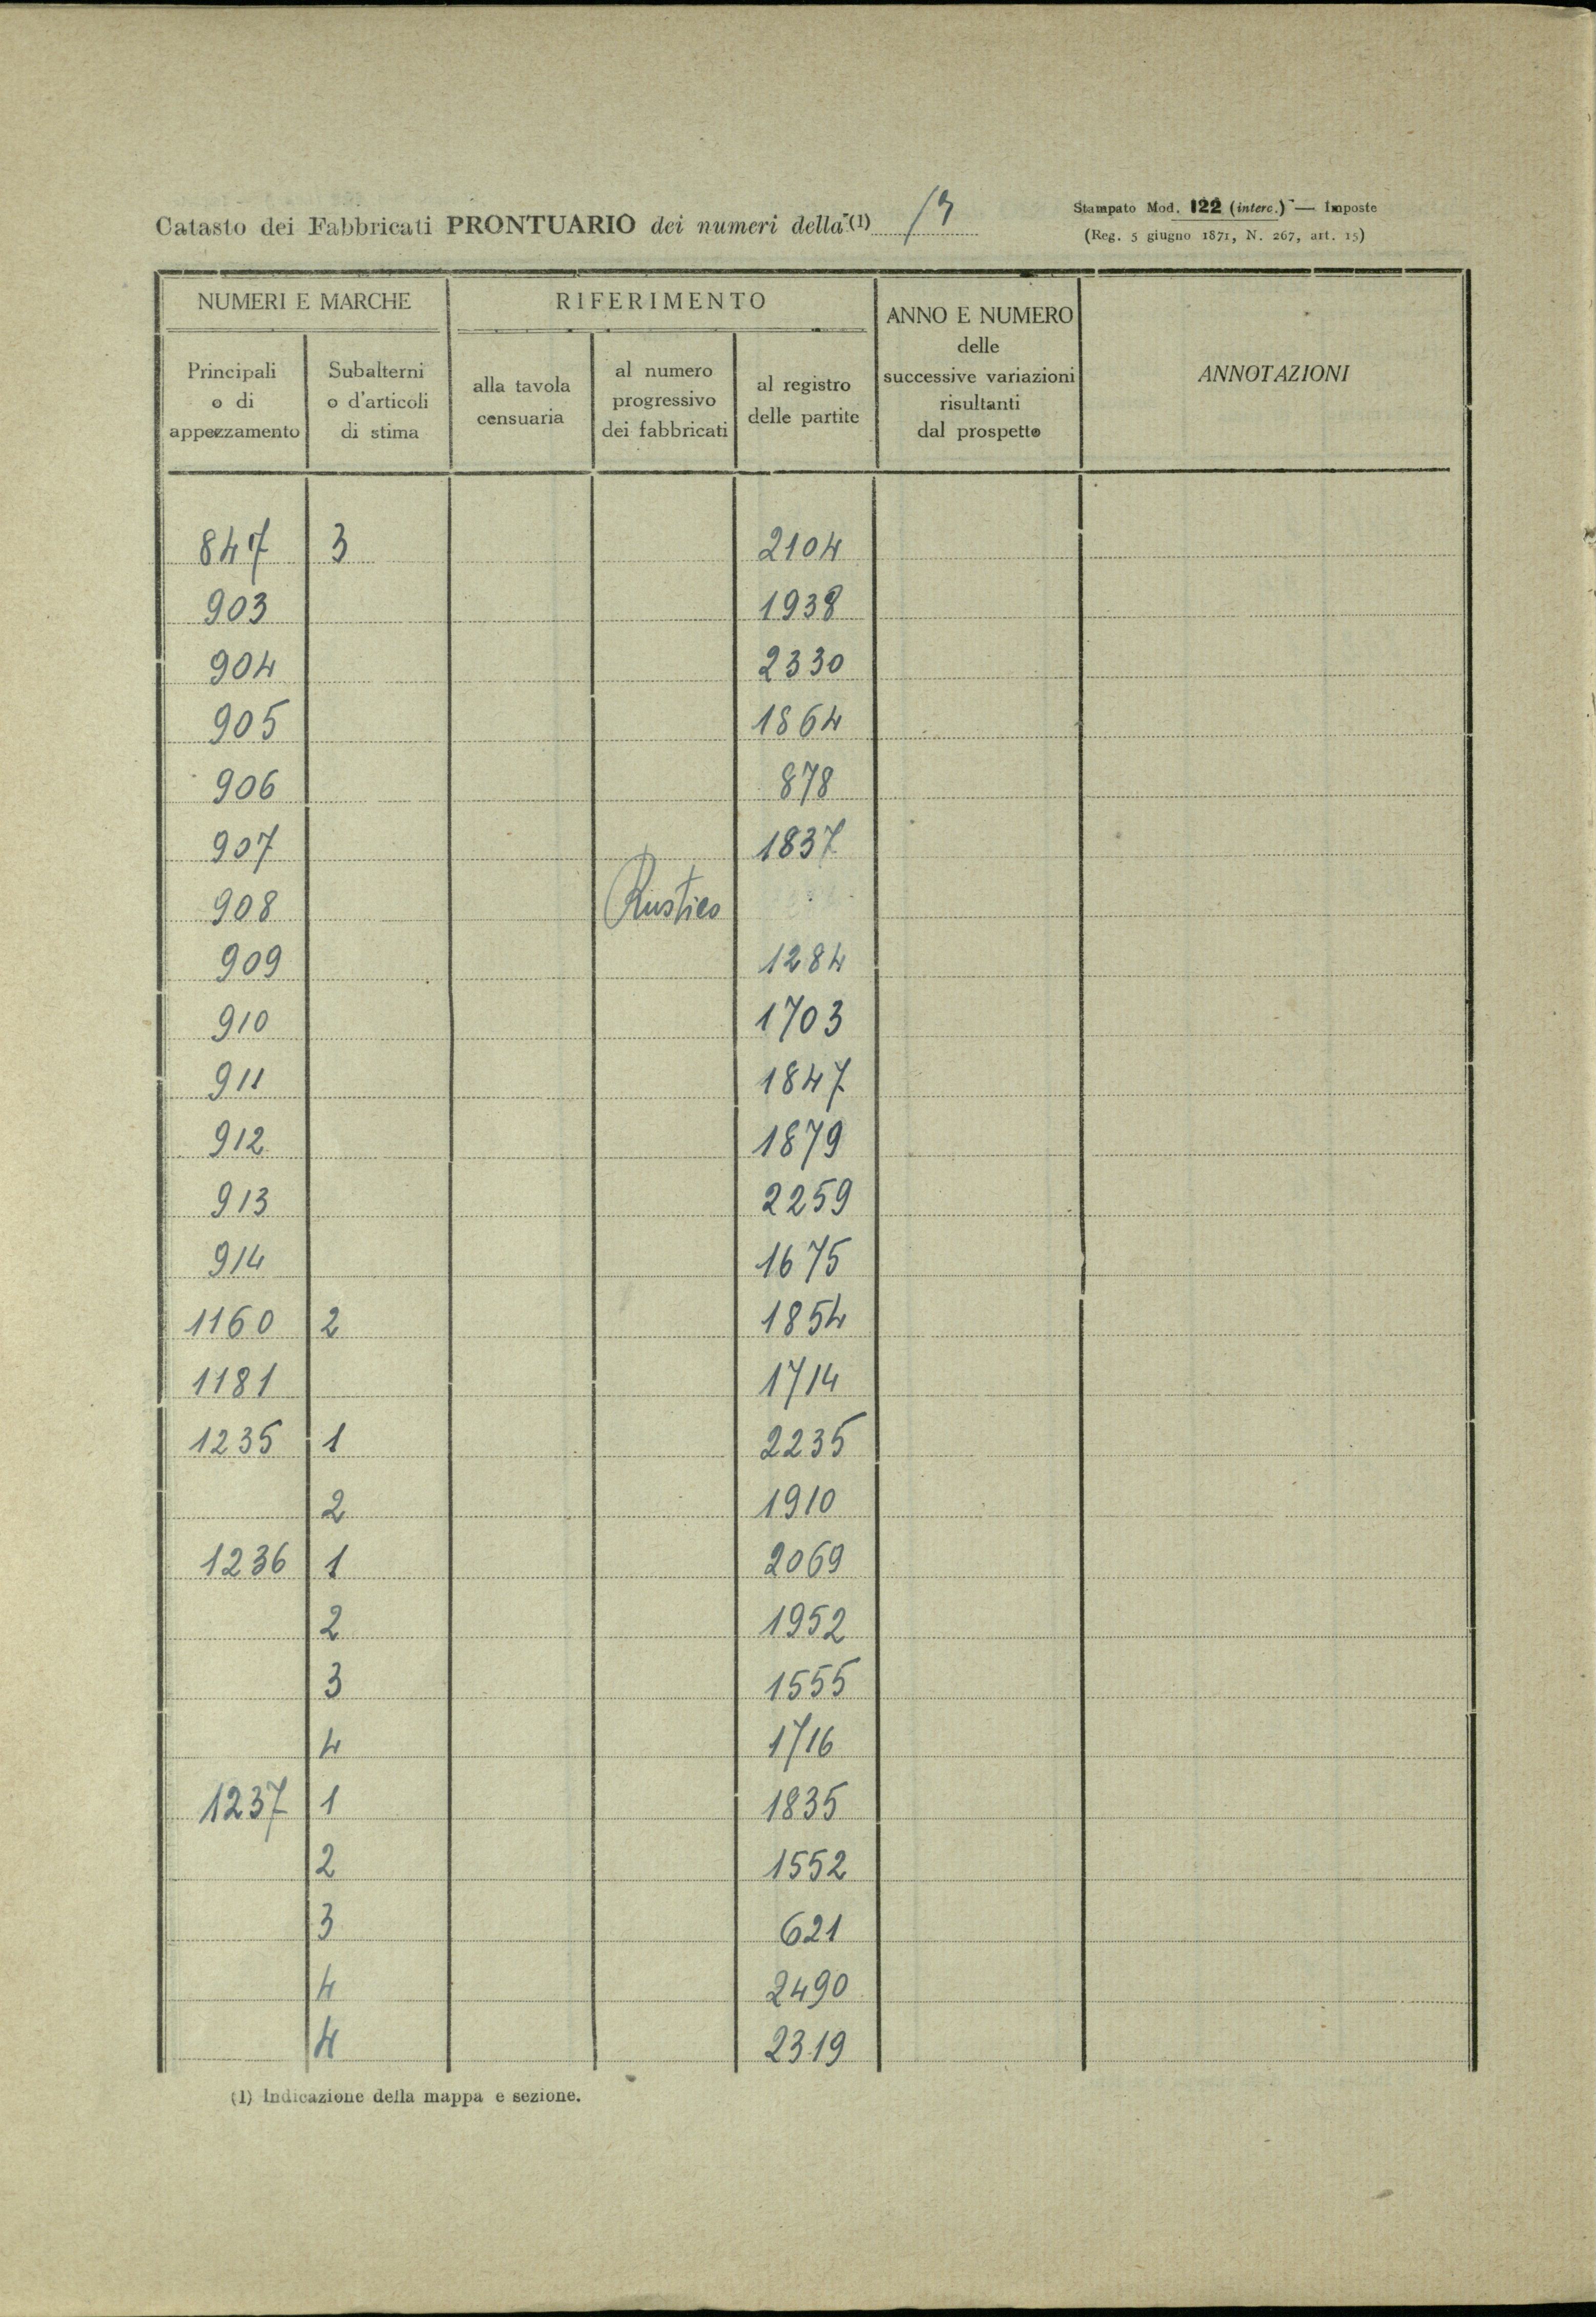 Catasto dei Fabbricati PRONTUARIO dei numeri della (1) 13
Stampato Mod. 122 (interc.) — Imposte
(Reg. 5 giugno 1871, N. 267, art. 15)
NUMERI E MARCHE
RIFERIMENTO
ANNO E NUMERO
delle
successive variazioni
risultanti
dal prospetto
ANNOTAZIONI
Principali
o di
appezzamento
Subalterni
o d'articoli
di stima
alla tavola
censuaria
al numero
progressivo
dei fabbricati
al registro
delle partite
847 3 2104
903 1938
904 2330
905 1864
906 878
907 1837
908 Rustico
909 1284
910 1703
911 1847
912 1879
913 2259
914 1675
1160 2 1854
1181 1714
1235 1 2235
2 1910
1236 1 2069
2 1952
3 1555
4 1716
1237 1 1835
2 1552
3 621
4 2490
4 2319
(1) Indicazione della mappa e sezione.